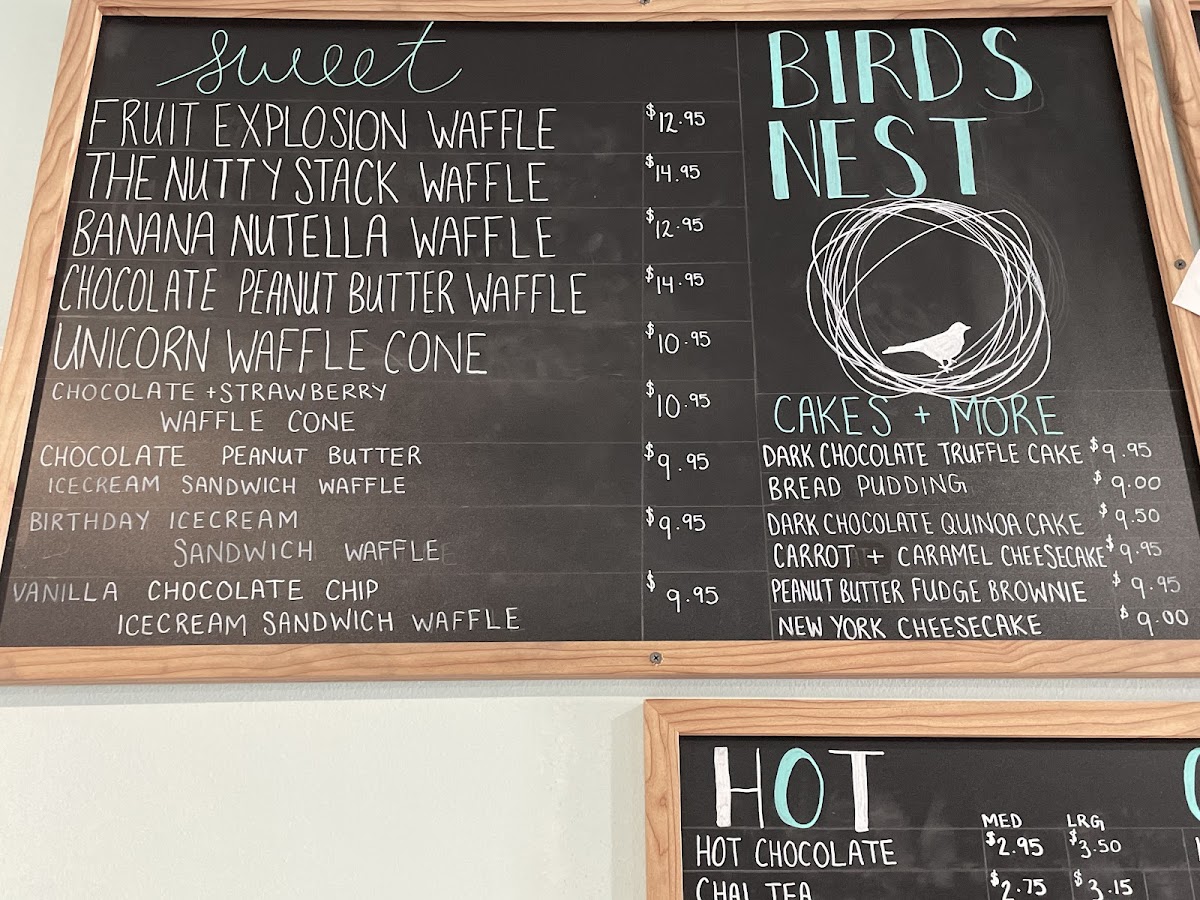 sweet
FRUIT EXPLOSION WAFFLE $12.95
THE NUTTY STACK WAFFLE $14.95
BANANA NUTELLA WAFFLE $12.95
CHOCOLATE PEANUT BUTTER WAFFLE $14.95
UNICORN WAFFLE CONE $10.95
CHOCOLATE + STRAWBERRY
WAFFLE CONE $10.95
CHOCOLATE PEANUT BUTTER
ICECREAM SANDWICH WAFFLE $9.95
BIRTHDAY ICECREAM
SANDWICH WAFFLE $9.95
VANILLA CHOCOLATE CHIP
ICECREAM SANDWICH WAFFLE $9.95
BIRDS
NEST
CAKES + MORE
DARK CHOCOLATE TRUFFLE CAKE $9.95
BREAD PUDDING $9.00
DARK CHOCOLATE QUINOA CAKE $9.50
CARROT + CARAMEL CHEESECAKE $9.95
PEANUT BUTTER FUDGE BROWNIE $9.95
NEW YORK CHEESECAKE $9.00
HOT
MED LRG
HOT CHOCOLATE $2.95 $3.50
CHAI TEA $2.75 $3.15